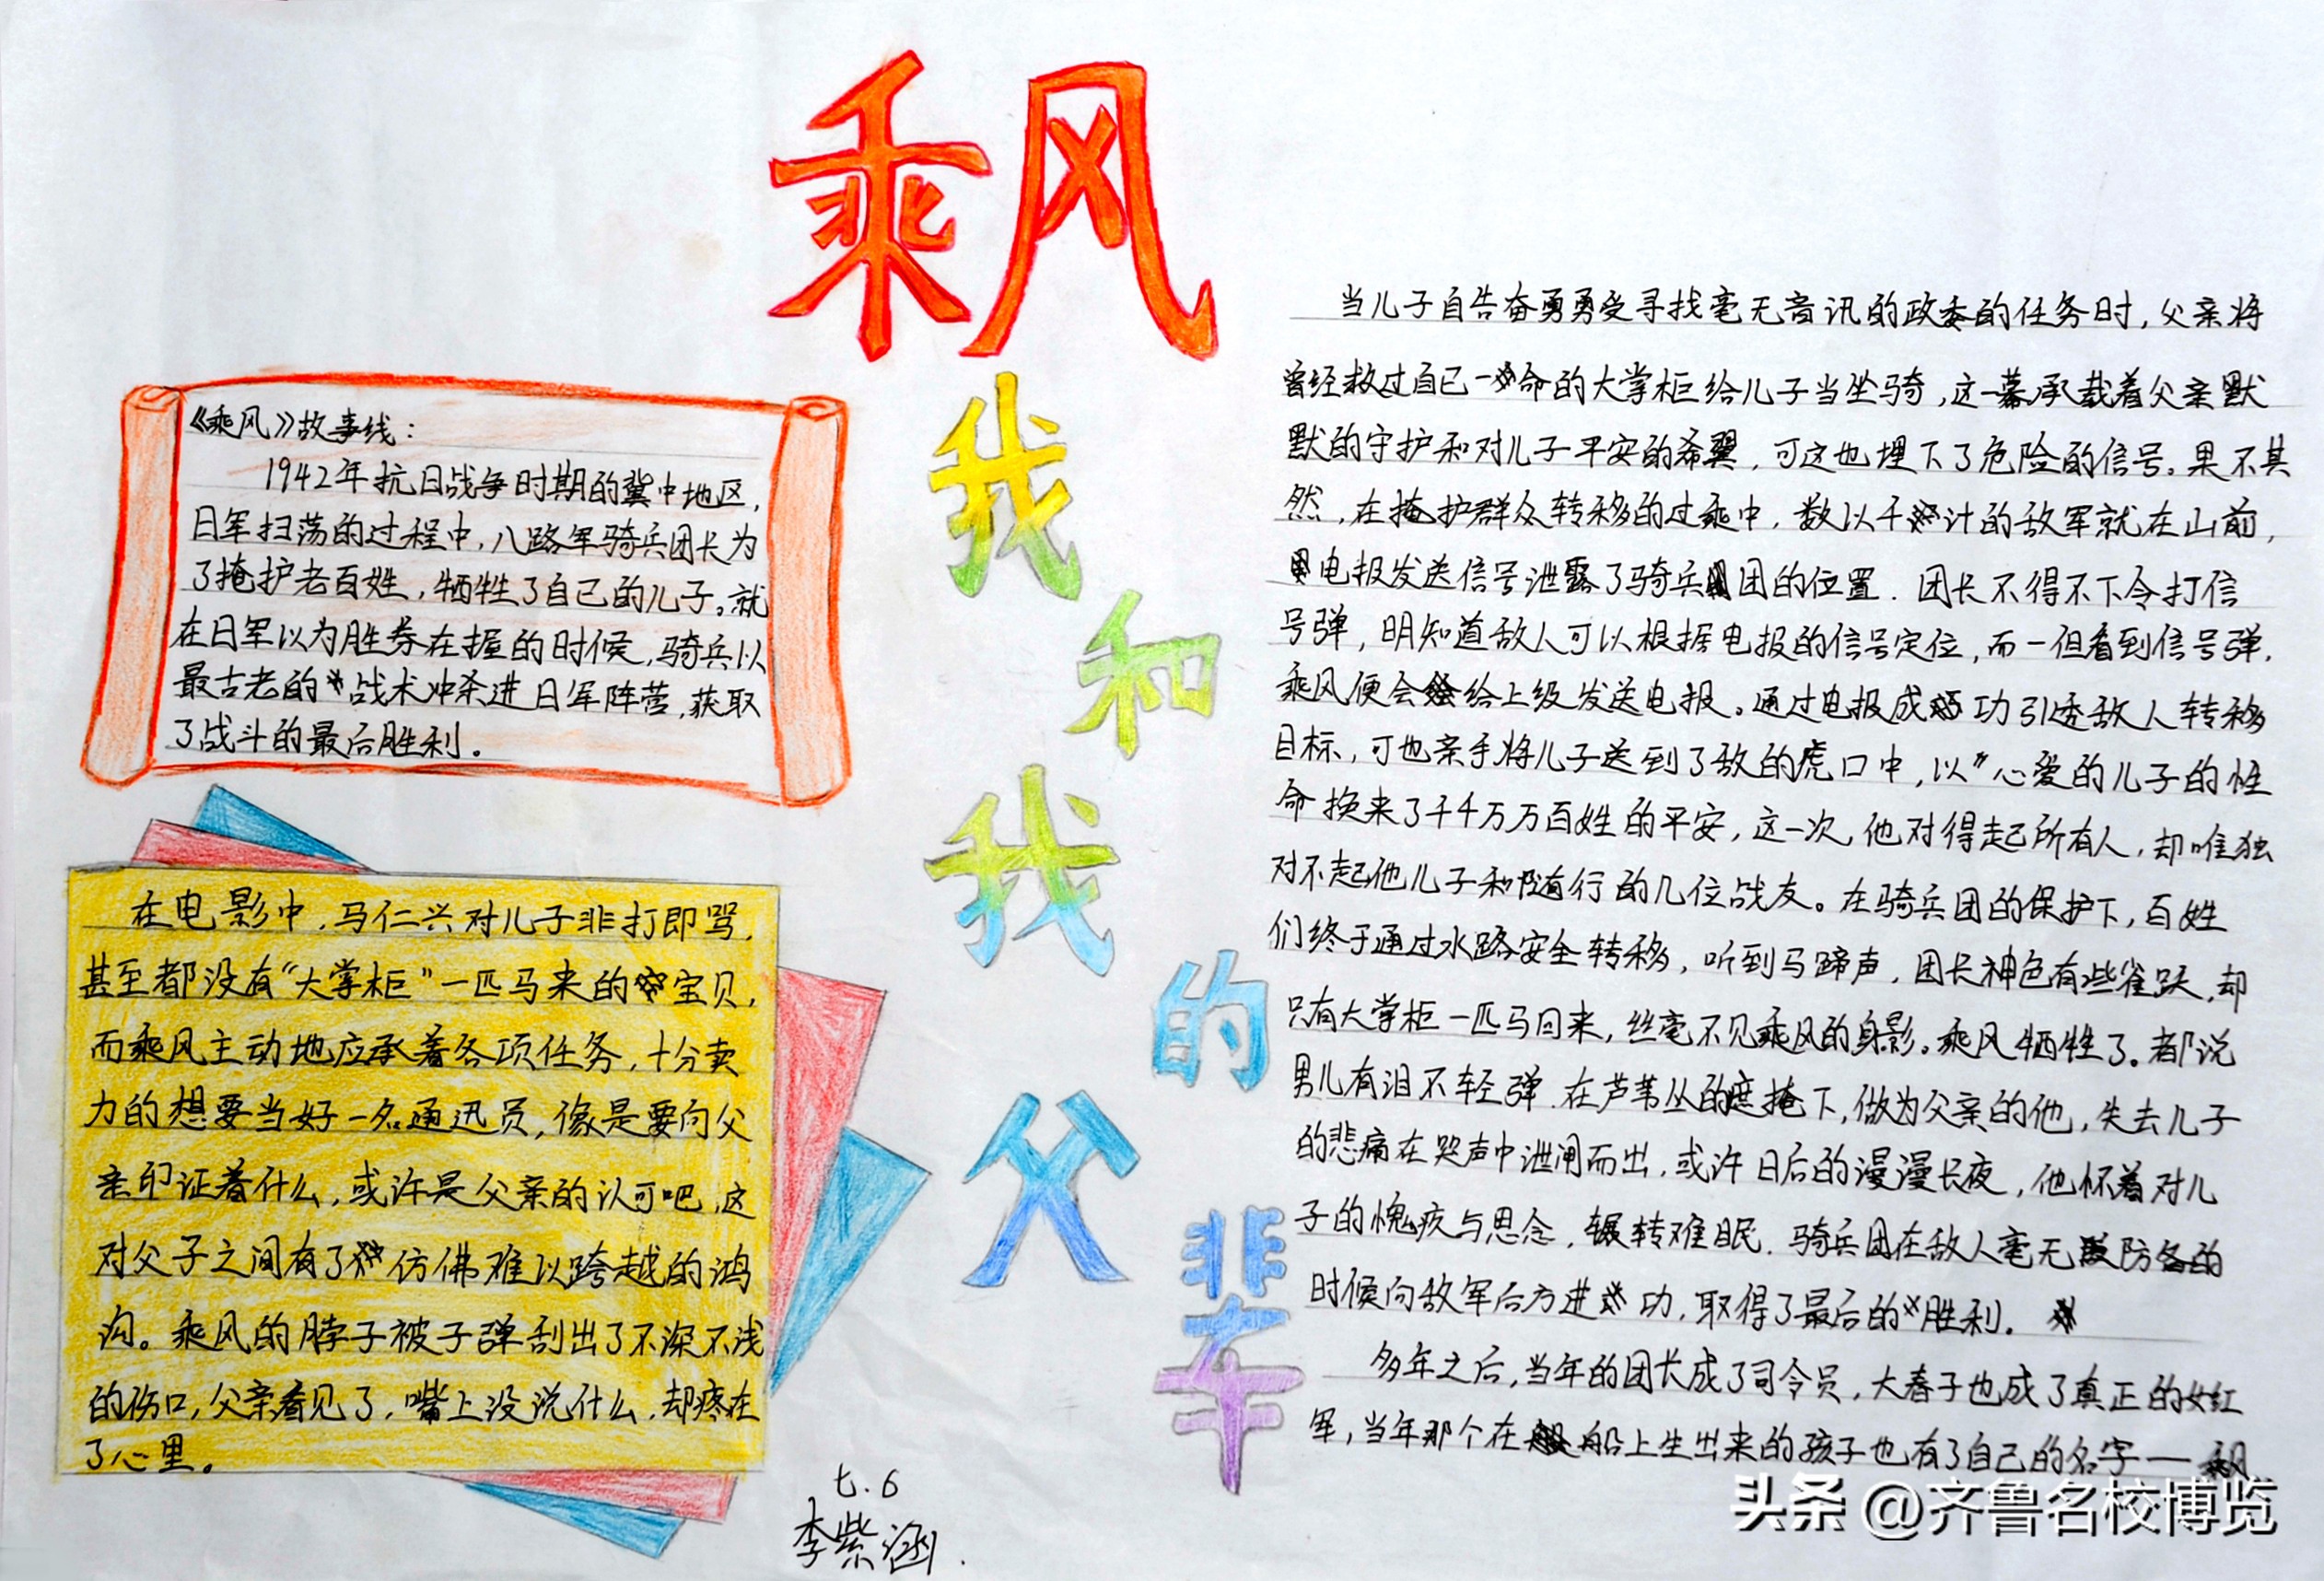 乘风
我和我的父辈
《乘风》故事线：
1942年抗日战争时期的冀中地区，
日军扫荡的过程中，八路军骑兵团长为
了掩护老百姓，牺牲了自己的儿子。就
在日军以为胜券在握的时候，骑兵以
最古老的战术冲杀进日军阵营，获取
了战斗的最后胜利。
在电影中，马仁兴对儿子非打即骂，
甚至都没有“大掌柜”一匹马来的宝贝，
而乘风主动地应承着各项任务，十分卖
力的想要当好一名通迅员，像是要向父
亲印证着什么，或许是父亲的认可吧，这
对父子之间有了仿佛难以跨越的鸿
沟。乘风的脖子被子弹刮出了不深不浅
的伤口，父亲看见了，嘴上没说什么，却疼在
了心里。
七.6
李紫涵.
当儿子自告奋勇勇受寻找毫无音讯的政委的任务时，父亲将
曾经救过自己一命的大掌柜给儿子当坐骑，这一幕承载着父亲默
默的守护和对儿子平安的希翼，可这也埋下了危险的信号。果不其
然，在掩护群众转移的过乘中，数以千计的敌军就在山前，
电报发送信号泄露了骑兵团的位置．团长不得不下令打信
号弹，明知道敌人可以根据电报的信号定位，而一但看到信号弹，
乘风便会给上级发送电报。通过电报成功引诱敌人转移
目标，可也亲手将儿子送到了敌的虎口中，以心爱的儿子的性
命换来了千千万万百姓的平安，这一次，他对得起所有人，却唯独
对不起他儿子和随行的几位战友。在骑兵团的保护下，百姓
们终于通过水路安全转移，听到马蹄声，团长神色有些雀跃，却
只有大掌柜一匹马回来，丝毫不见乘风的身影。乘风牺牲了。都说
男儿有泪不轻弹．在芦苇丛的庶掩下，做为父亲的他，失去儿子
的悲痛在哭声中泄闸而出，或许日后的漫漫长夜，他怀着对儿
子的愧疚与思念，辗转难眠．骑兵团在敌人毫无防备的
时候向敌军后方进功，取得了最后的胜利。
多年之后，当年的团长成了司令员，大春子也成了真正的女红
军，当年那个在船上生出来的孩子也有了自己的名字——乘风
头条 @齐鲁名校博览